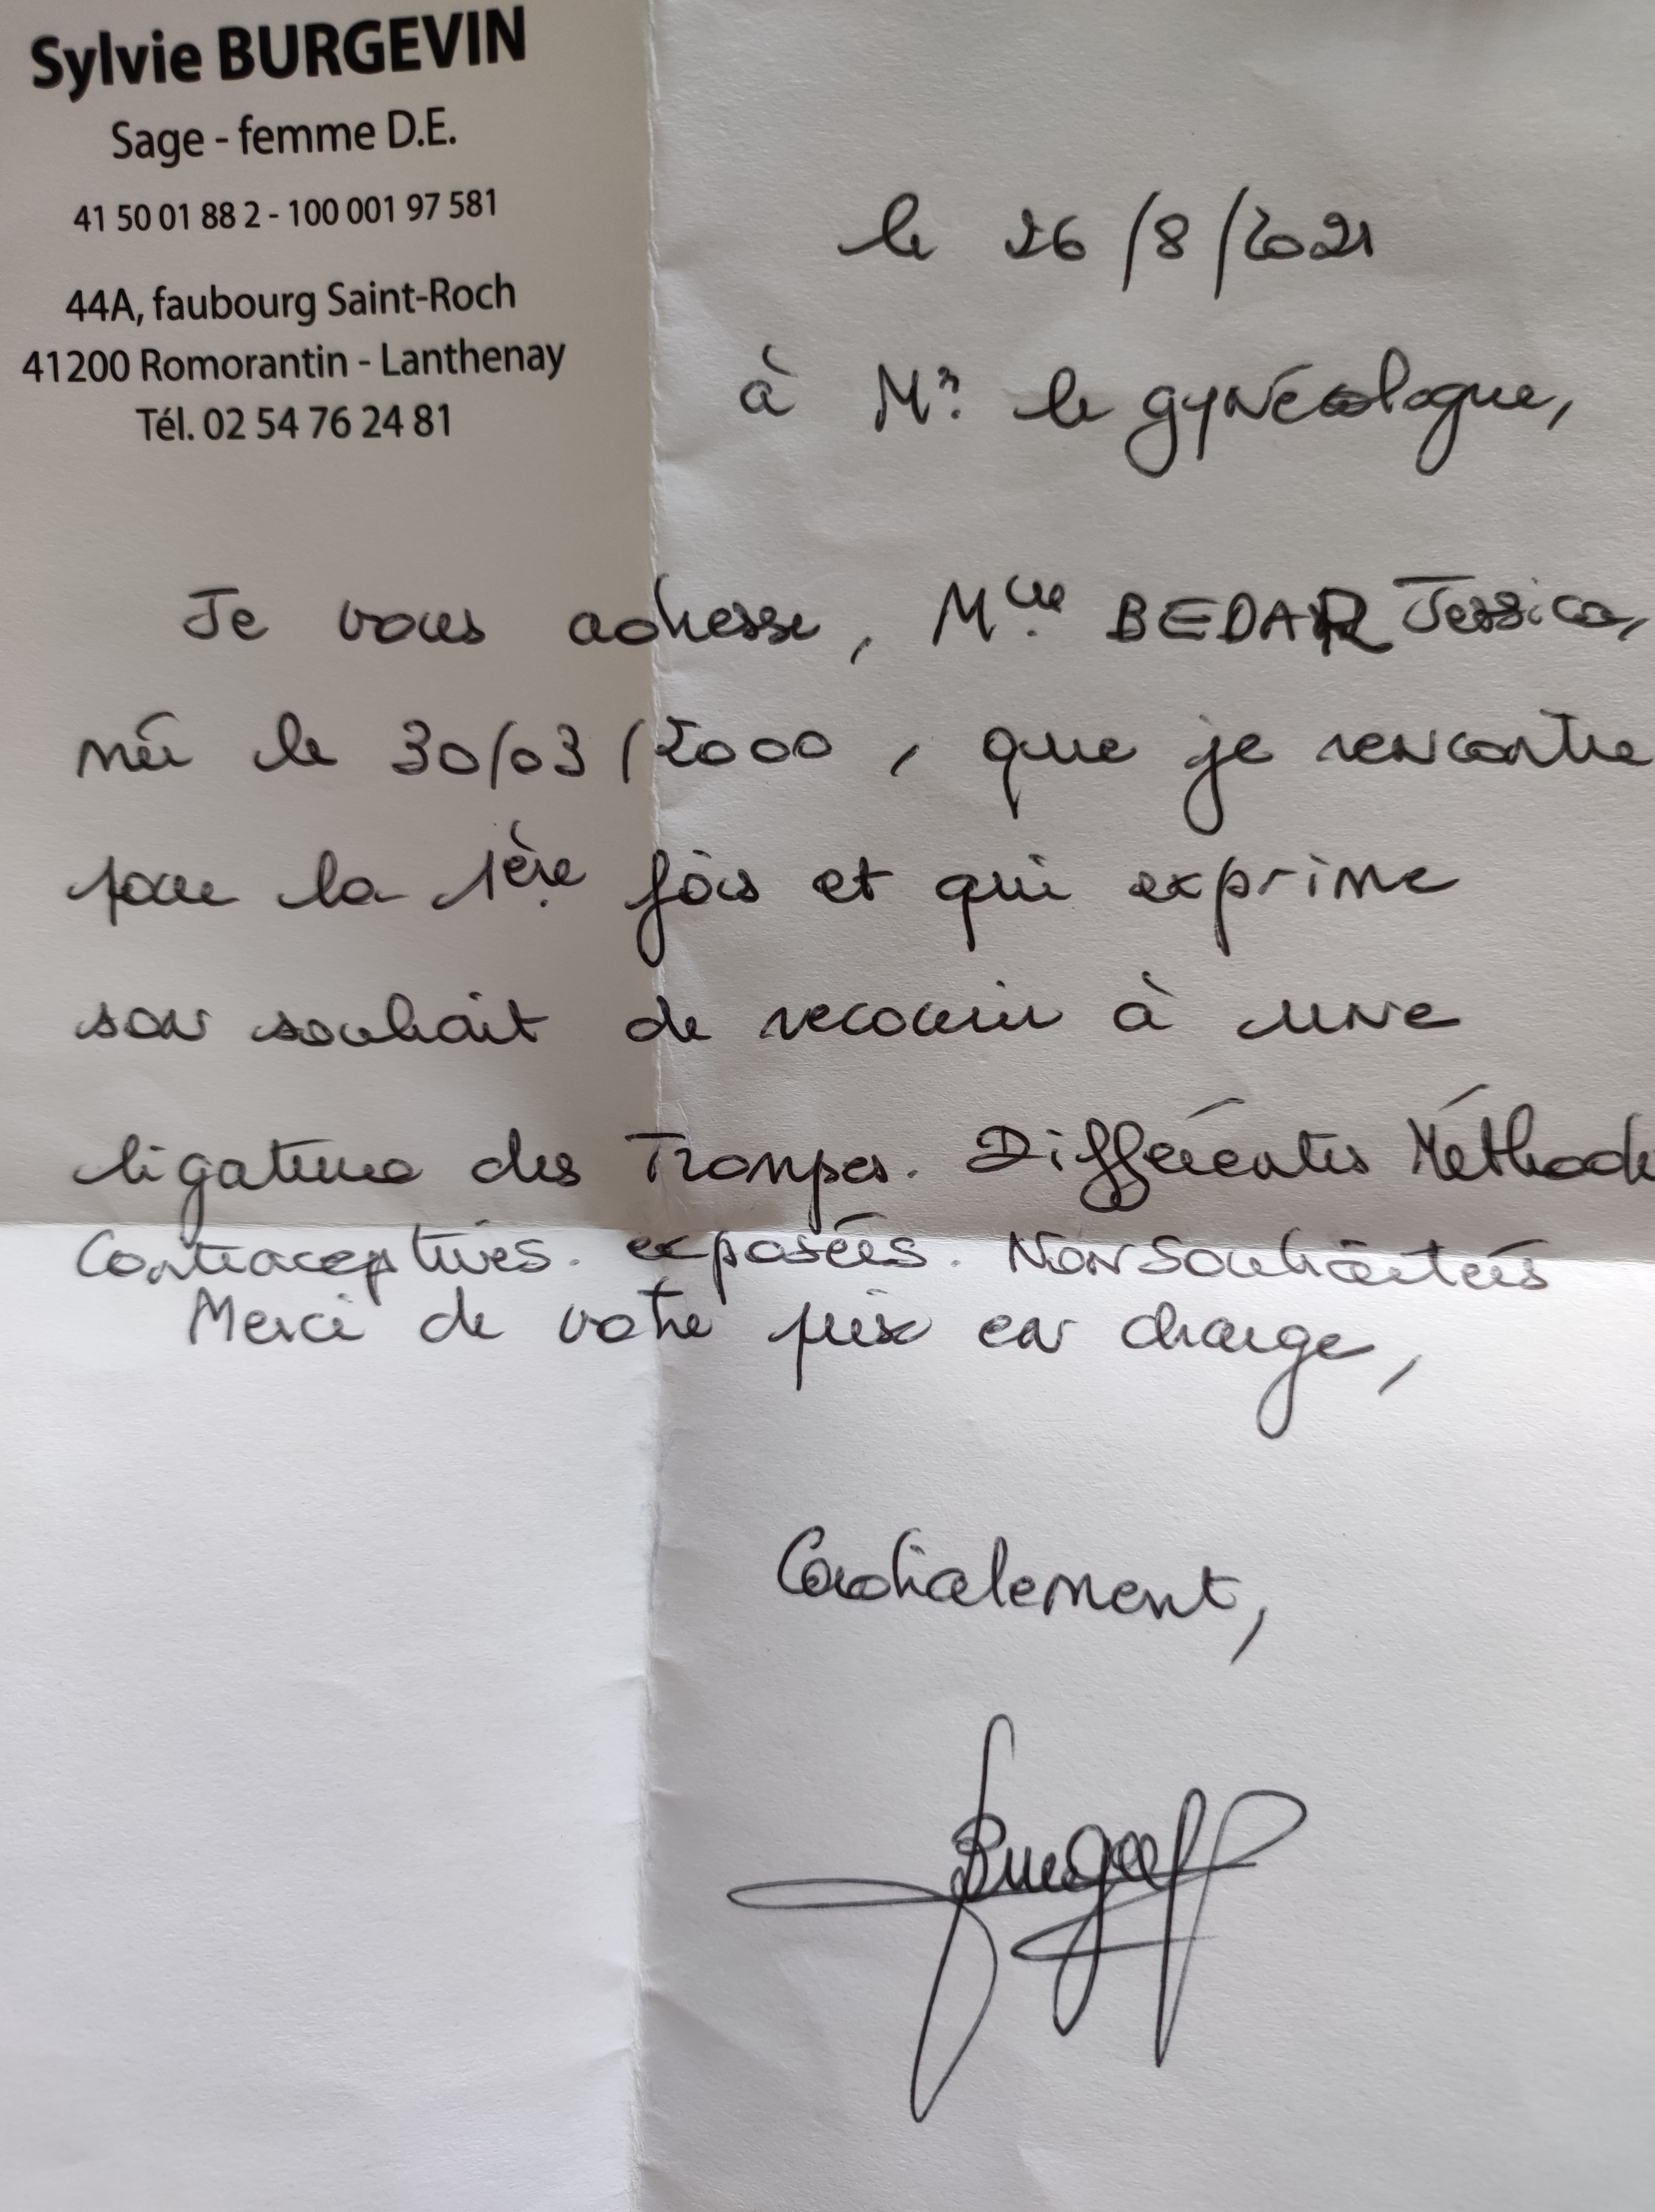 Sylvie BURGEVIN
Sage - femme D.E.
41 50 01 88 2 - 100 001 97 581
44A, faubourg Saint-Roch
41200 Romorantin - Lanthenay
Tél. 02 54 76 24 81
le 26/8/2021
à Mr. le gynécologue,
Je vous adresse, Mlle BEDAR Jessica,
née le 30/03/2000, que je rencontre
pour la 1ère fois et qui exprime
son souhait de recourir à une
ligature des Trompes. Différentes Méthode
Contraceptives. exposées. Non Souhaitées
Merci de votre prise en charge,
Cordialement,